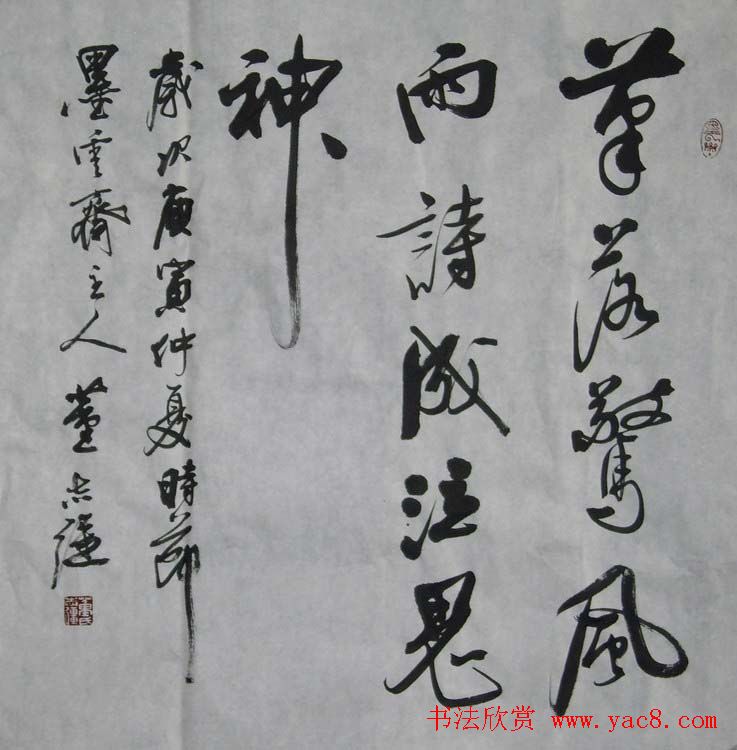 筆落驚風
雨詩成泣鬼
神
歲次庚寅仲夏時節
墨雲齋主人董志
书法欣赏 www.yac8.com